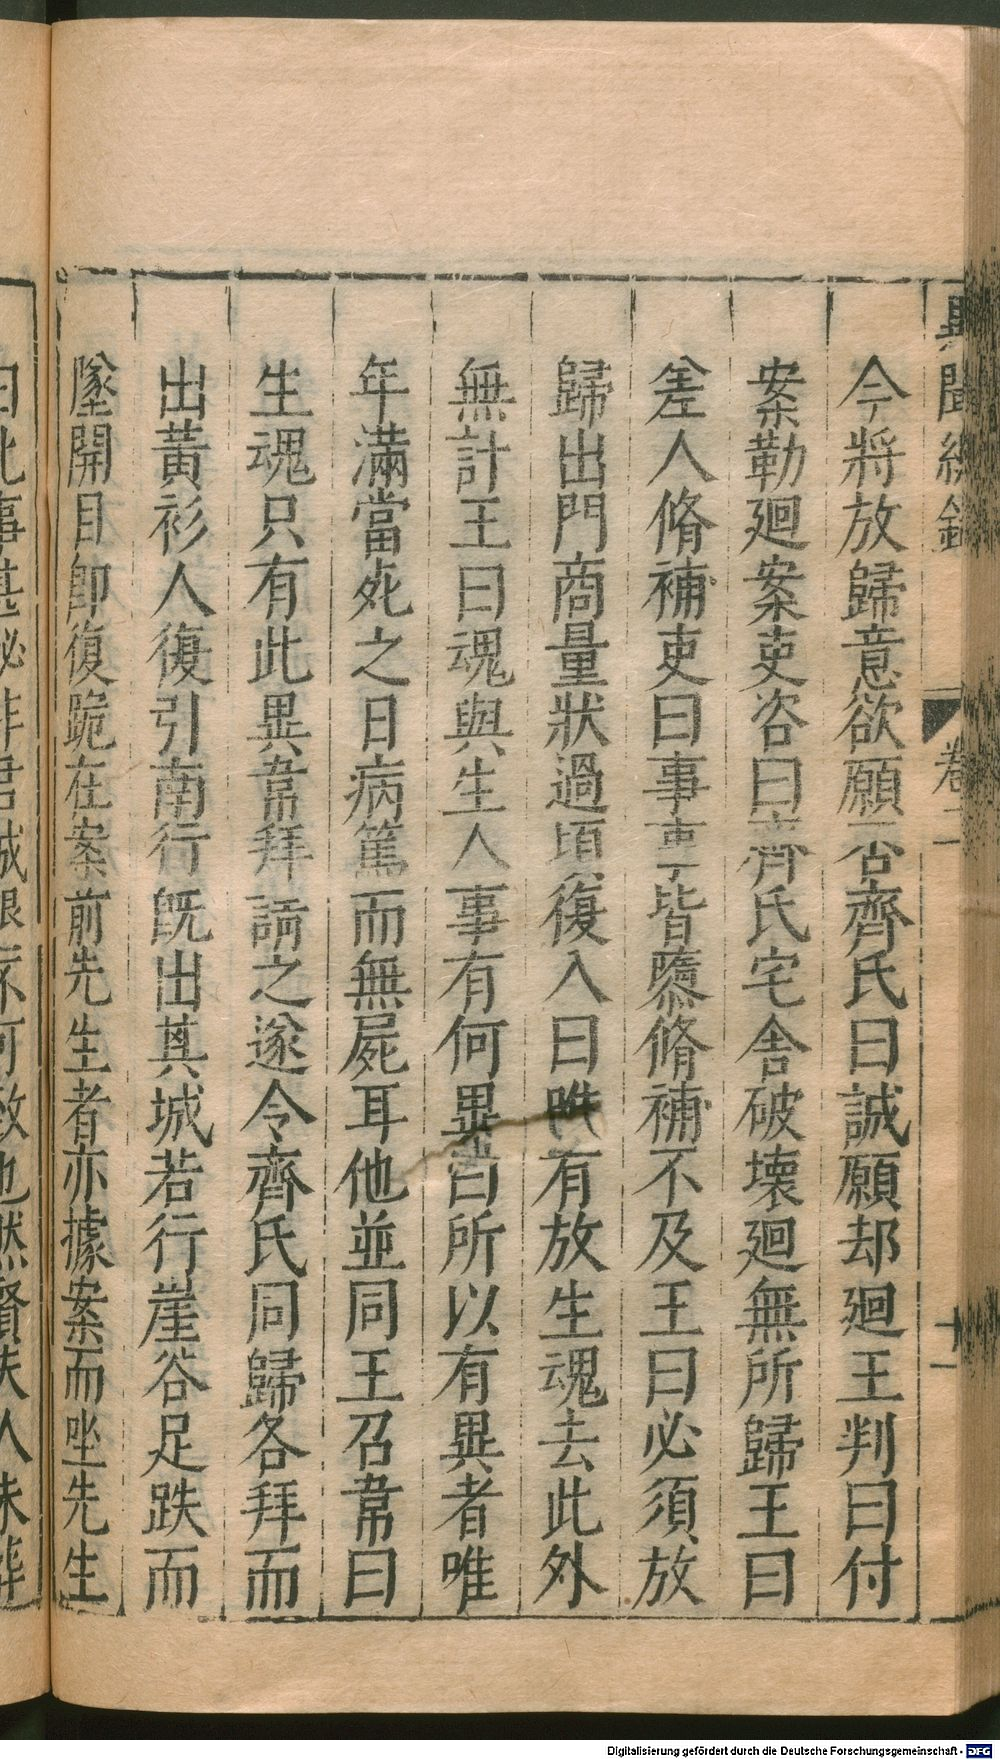 異聞總錄 卷二
今將放歸意欲願否齊氏曰誠願却廻王判曰付
案勒廻案吏咨曰齊氏宅舍破壞廻無所歸王曰
差人脩補吏曰事事皆隳脩補不及王曰必須放
歸出門商量狀過頃復入曰唯有放生魂去此外
無計王曰魂與生人事有何異曰所以有異者唯
年滿當死之日病篤而無屍耳他並同王召韋曰
生魂只有此異韋拜請之遂令齊氏同歸各拜而
出黃衫人復引南行旣出其城若行崖谷足跌而
墜開目卽復跪在案前先生者亦據案而坐先生
曰此事甚祕非君誠懇不可致也然賢夫人未葬
Digitalisierung gefördert durch die Deutsche Forschungsgemeinschaft - DFG